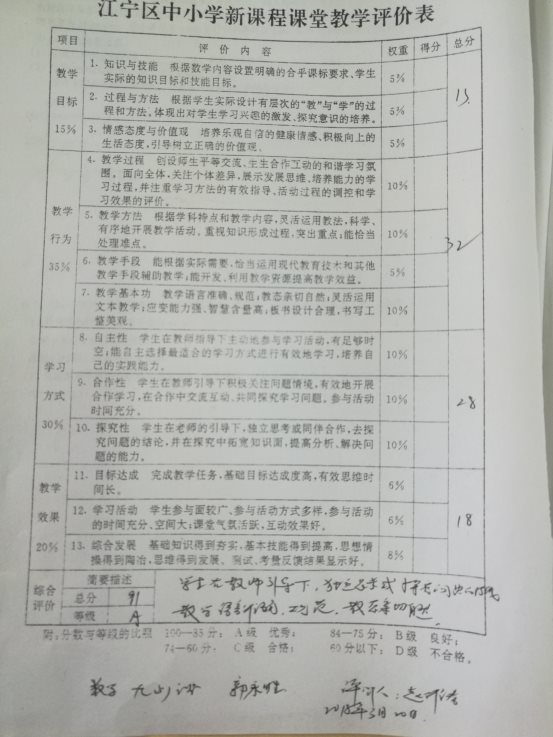 江宁区中小学新课程课堂教学评价表
项目 评价内容 权重 得分 总分
教学目标 15% 1. 知识与技能 根据教学内容设置明确的合乎课标要求、学生 5% 15
实际的知识目标和技能目标。
2. 过程与方法 根据学生实际设计有层次的“教”与“学”的过 5%
程和方法。体现出对学生学习兴趣的激发、探究意识的培养。
3. 情感态度与价值观 培养乐观自信的健康情感、积极向上的 5%
生活态度,引导树立正确的价值观。
教学行为 35% 4. 教学过程 创设师生平等交流、生生合作互动的和谐学习氛 10% 32
围。面向全体,关注个体差异,展示发展思维、培养能力的学
习过程,并注重学习方法的有效指导、活动过程的调控和学
习效果的评价。
5. 教学方法 根据学科特点和教学内容,灵活运用教法,科学、 10%
有序地开展教学活动。重视知识形成过程,突出重点;能恰当
处理难点。
6. 教学手段 能根据实际需要,恰当运用现代教育技术和其他 5%
教学手段辅助教学;能开发、利用教学资源提高教学效益。
7. 教学基本功 教学语言准确、规范;教态亲切自然;灵活运用 10%
文本教学;应变能力强、智慧含量高;板书设计合理,书写工
整美观。
学习方式 30% 8. 自主性 学生在教师指导下主动地参与学习活动,有足够时 10% 28
空;能自主选择最适合的学习方式进行有效地学习,培养自
己的实践能力。
9. 合作性 学生在教师引导下积极关注问题情境,有效地开展 10%
合作学习,在合作中交流互动、共同探究学习问题。参与活动
时间充分。
10. 探究性 学生在老师的引导下,独立思考或同伴合作,去探 10%
究问题的结论,并在探究中拓宽知识面,提高分析、解决问
题的能力。
教学效果 20% 11. 目标达成 完成教学任务,基础目标达成度高,有效思维时 6% 18
间长。
12. 学习活动 学生参与面较广、参与活动方式多样,参与活动 6%
的时间充分、空间大;课堂气氛活跃,互动效果好。
13. 综合发展 基础知识得到夯实,基本技能得到提高,思想情 8%
操得到陶冶,思维得到发展。测试、考量反馈结果显示好。
综合评价 简要描述 学生在教师引导下,独立
总分 91
等级 A 教学
附:分数与等级的比照 100—85分: A级 优秀; 84—75分: B级 良好;
74—60分: C级 合格; 60分以下: D级 不合格。